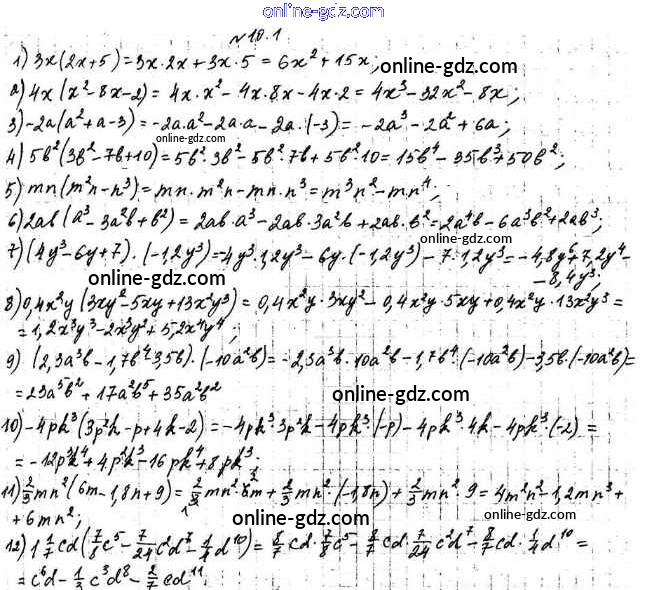 online-gdz.com
№10.1.
1) 3x(2x+5)=3x·2x+3x·5=6x²+15x;
online-gdz.com
2) 4x(x²-8x-2)=4x·x²-4x·8x-4x·2=4x³-32x²-8x;
3) -2a(a²+a-3)=-2a·a²-2a·a-2a·(-3)=-2a³-2a²+6a;
online-gdz.com
4) 5b²(3b²-7b+10)=5b²·3b²-5b²·7b+5b²·10=15b⁴-35b³+50b²;
5) mn(m²n-n³)=mn·m²n-mn·n³=m³n²-mn⁴;
6) 2ab(a³-3a²b+b²)=2ab·a³-2ab·3a²b+2ab·b²=2a⁴b-6a³b²+2ab³;
online-gdz.com
7) (4y³-6y+7)·(-1,2y³)=-4y³·1,2y³-6y·(-1,2y³)-7·1,2y³=-4,8y⁶+7,2y⁴-
-8,4y³;
online-gdz.com
8) 0,4x²y(3xy²-5xy+13x²y³)=0,4x²y·3xy²-0,4x²y·5xy+0,4x²y·13x²y³=
=1,2x³y³-2x³y²+5,2x⁴y⁴;
online-gdz.com
9) (2,3a³b-1,7b⁴-3,5b)·(-10a²b)=-2,3a³b·10a²b-1,7b⁴·(-10a²b)-3,5b·(-10a²b)=
=23a⁵b²+17a²b⁵+35a²b²
online-gdz.com
10) -4pk³(3p²k-p+4k-2)=-4pk³·3p²k-4pk³·(-p)-4pk³·4k-4pk³·(-2)=
online-gdz.com
=-12p³k⁴+4p²k³-16pk⁴+8pk³.
11) 2/3mn²(6m-1,8n+9)=2/3mn²·6m+2/3mn²·(-1,8n)+2/3mn²·9=4m²n²-1,2mn³+
+6mn²;
online-gdz.com
12) 1 1/7cd(7/8c⁵-7/24c²d⁷-1/4d¹⁰)=8/7cd·7/8c⁵-8/7cd·7/24c²d⁷-8/7cd·1/4d¹⁰=
=c⁶d-1/3c³d⁸-2/7cd¹¹.